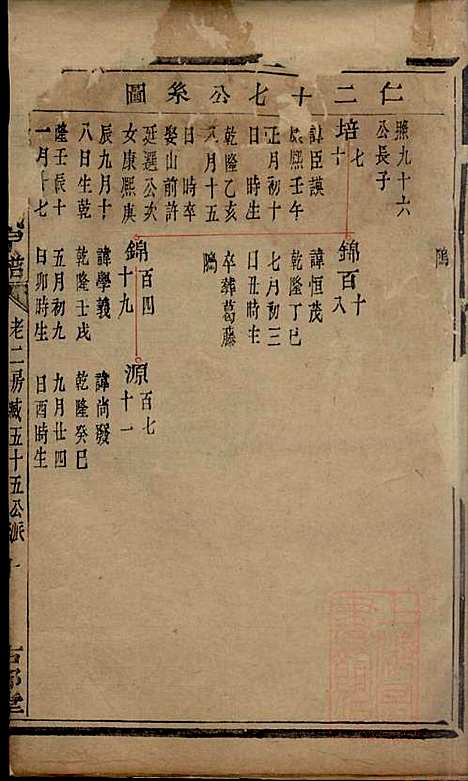 仁二十七公系圖
塢
九十六
公長子
培七十
諱臣謨
康熙壬午
正月初十
日時生
乾隆乙亥
八月十五
日時卒
娶山前許
延選公次
女康熙庚
辰九月十
八日生乾
隆壬辰十
一月十七
錦百十八
諱恒茂
乾隆丁巳
七月初三
日丑時生
卒葬葛藤
塢
錦百四十九
諱學義
乾隆壬戌
五月初九
日卯時生
源百七十一
諱尚發
乾隆癸巳
九月廿四
日酉時生
譜
老二房臧五十五公派
堂